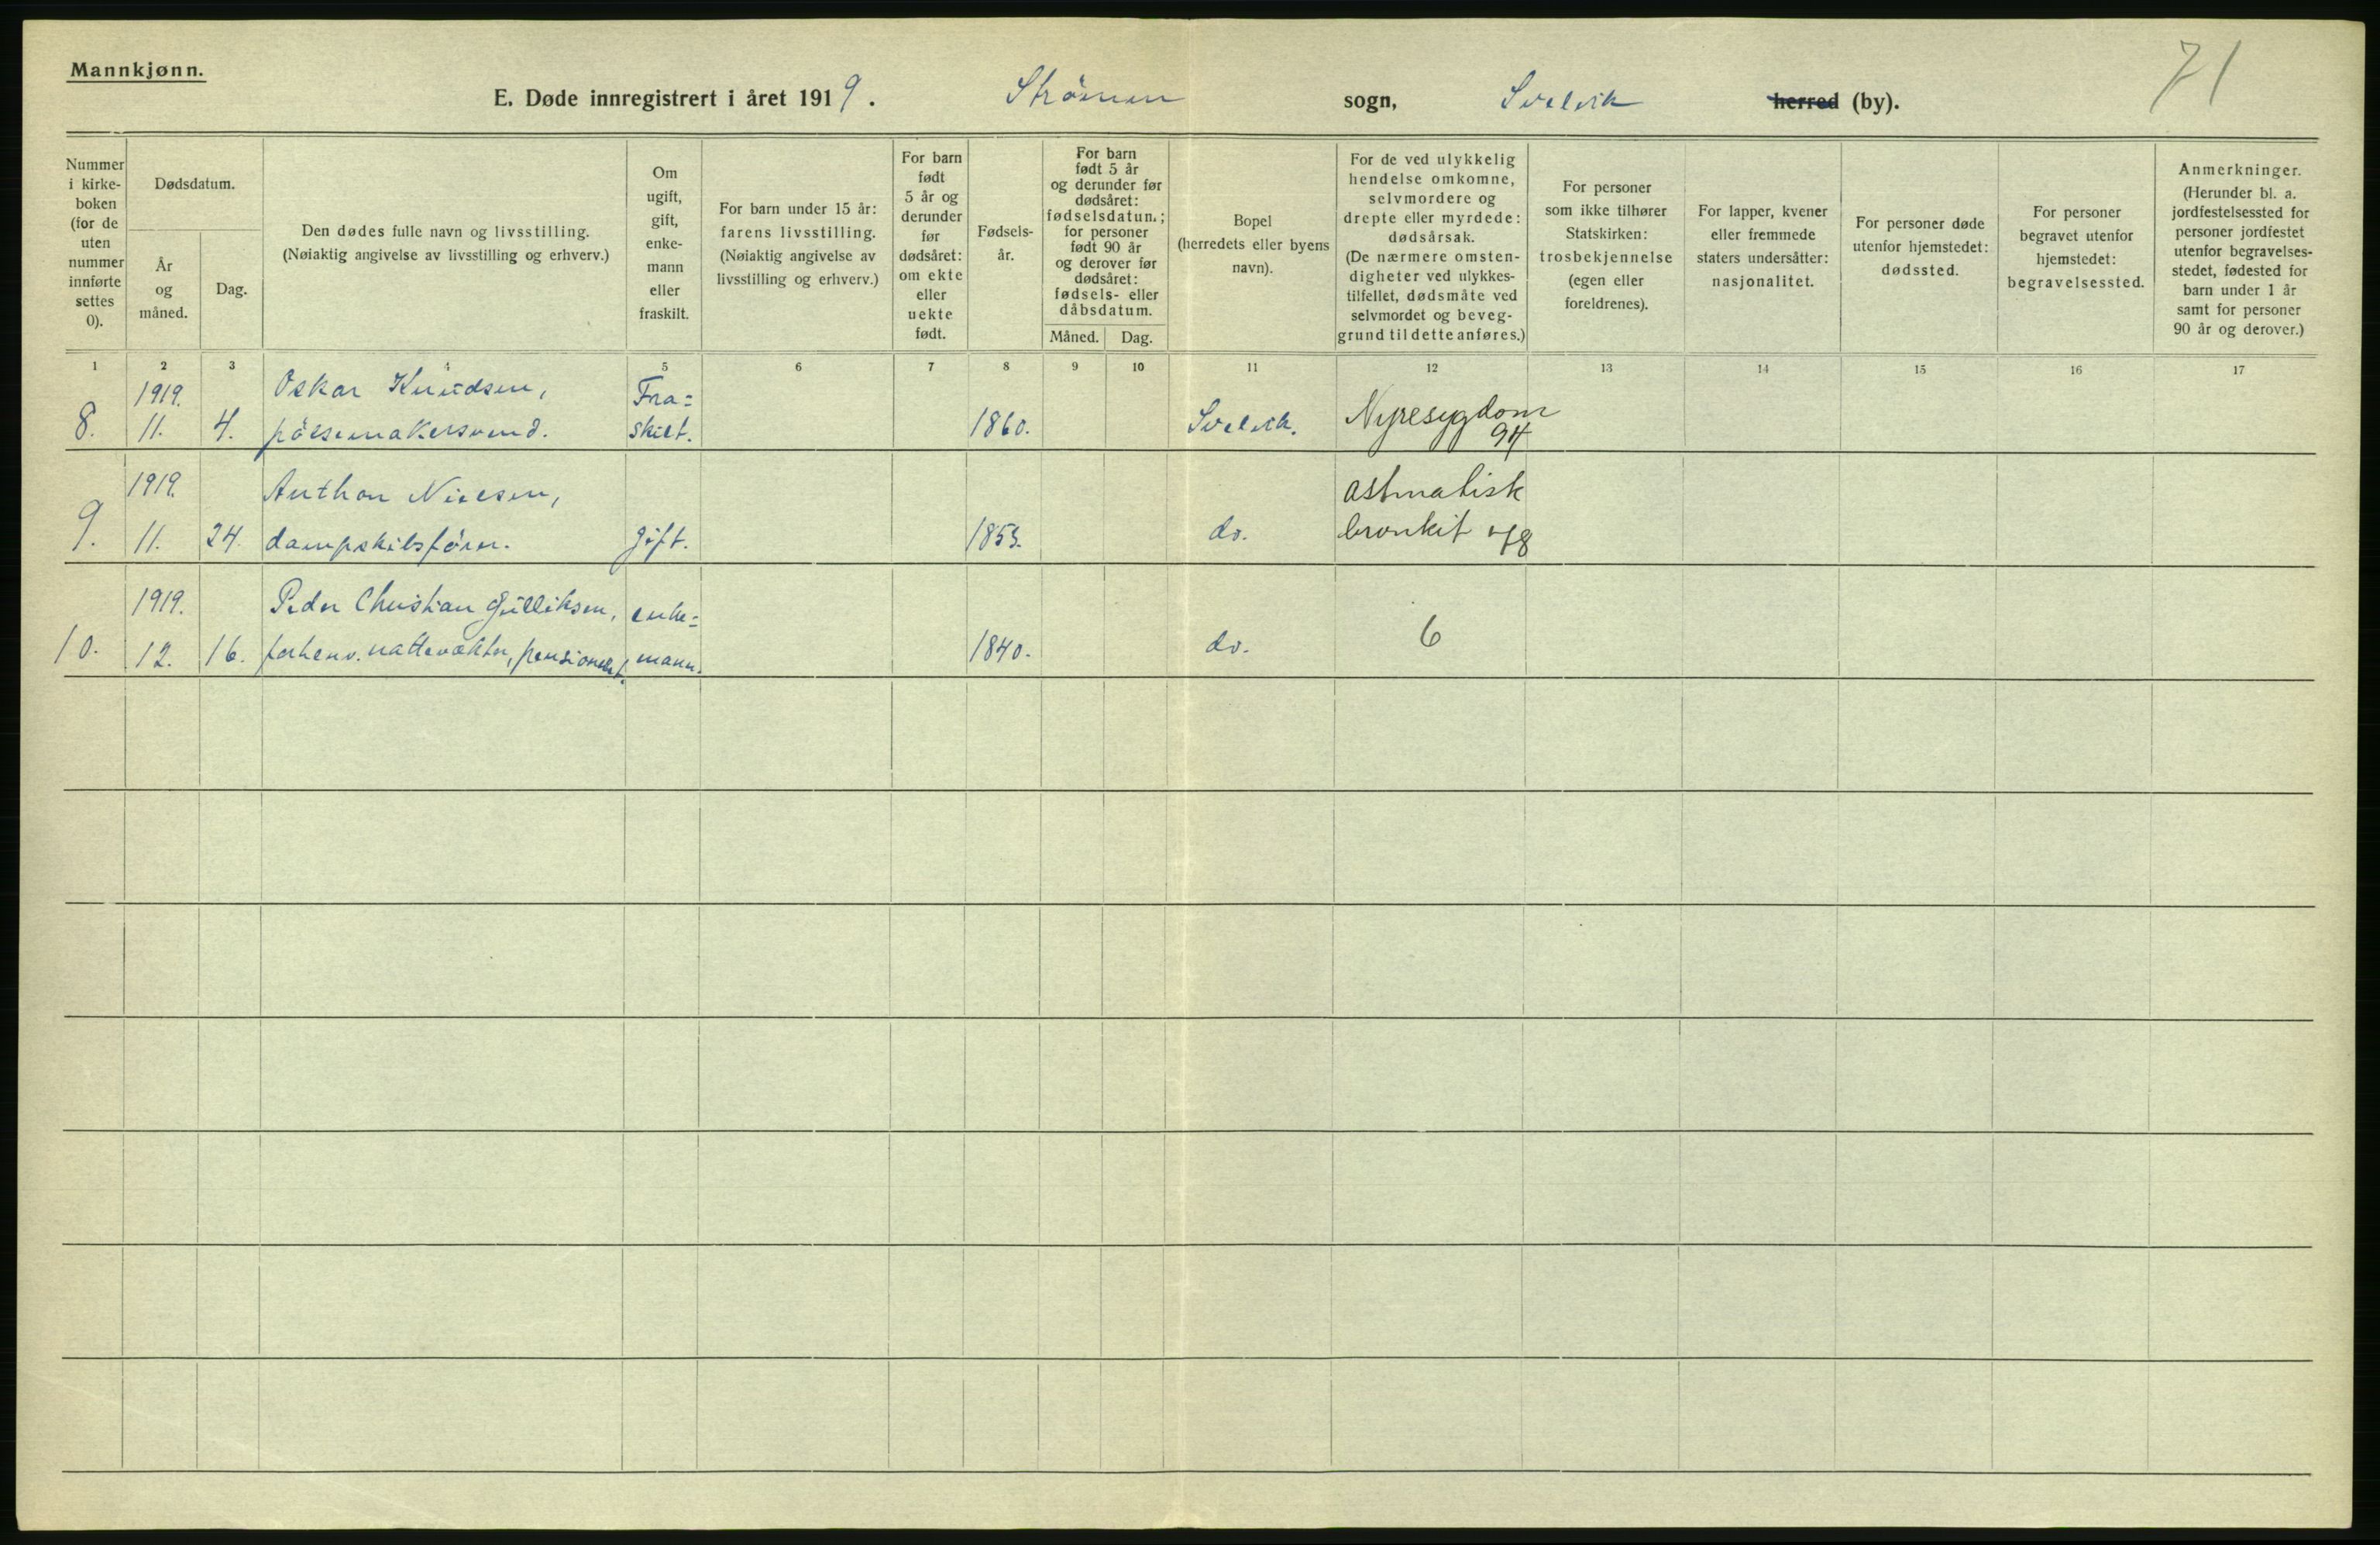 Mannkjønn.
71
E. Døde innregistrert i året 1919. Strömmen sogn, Svelvik herred (by).
Nummer i kirke-boken (for de uten nummer innførte settes 0).
Dødsdatum.
År og måned.
Dag.
Den dødes fulle navn og livsstilling.
(Nøiaktig angivelse av livsstilling og erhverv.)
Om ugift, gift, enke-mann eller fraskilt.
For barn under 15 år: farens livsstilling.
(Nøiaktig angivelse av livsstilling og erhverv.)
For barn født 5 år og derunder før dødsåret: om ekte eller uekte født.
Fødsels-år.
For barn født 5 år og derunder før dødsåret: fødselsdatum.; for personer født 90 år og derover før dødsåret: fødsels- eller dåbsdatum.
Måned.
Dag.
Bopel (herredets eller byens navn).
For de ved ulykkelig hendelse omkomne, selvmordere og drepte eller myrdede: dødsårsak.
(De nærmere omsten-digheter ved ulykkes-tilfellet, dødsmåte ved selvmordet og beveg-grund til dette anføres.)
For personer som ikke tilhører Statskirken: trosbekjennelse (egen eller foreldrenes).
For lapper, kvener eller fremmede staters undersåtter: nasjonalitet.
For personer døde utenfor hjemstedet: dødssted.
For personer begravet utenfor hjemstedet: begravelsessted.
Anmerkninger.
(Herunder bl. a. jordfestelsessted for personer jordfestet utenfor begravelses-stedet, fødested for barn under 1 år samt for personer 90 år og derover.)
1 2 3 4 5 6 7 8 9 10 11 12 13 14 15 16 17
1919. Oskar Knudsen, Fra=
8. 11. 4. pölsemakersvend. skilt. 1860. Svelvik. Nyresygdom
94
1919. Anthon Nielsen, astmatisk
9. 11. 24. dampskibsförer. gift. 1853. do. bronkit 78
1919. Peder Christian Gulliksen, enke=
10. 12. 16. forhenv. nattevækter, pensionert. mann. 1840. do. 6